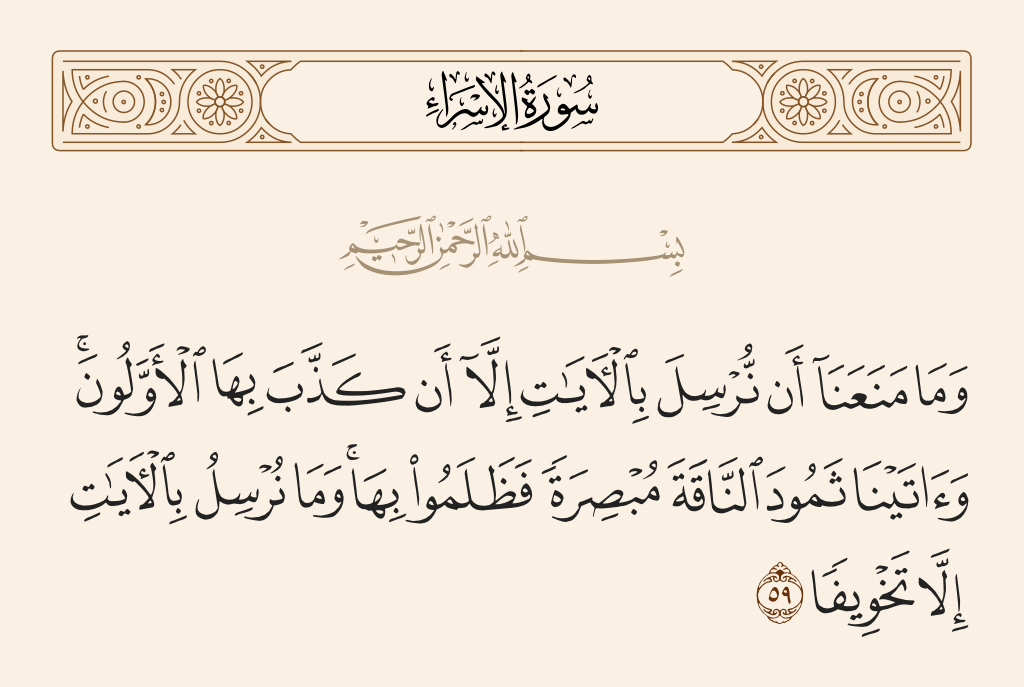 سُورَةُ الإِسْرَاءِ
بِسْمِ ٱللَّهِ ٱلرَّحْمَٰنِ ٱلرَّحِيمِ
وَمَا مَنَعَنَآ أَن نُّرْسِلَ بِٱلْـَٔايَـٰتِ إِلَّآ أَن كَذَّبَ بِهَا ٱلْأَوَّلُونَ ۚ
وَءَاتَيْنَا ثَمُودَ ٱلنَّاقَةَ مُبْصِرَةً فَظَلَمُوا۟ بِهَا ۚ وَمَا نُرْسِلُ بِٱلْـَٔايَـٰتِ
إِلَّا تَخْوِيفًا ٥٩